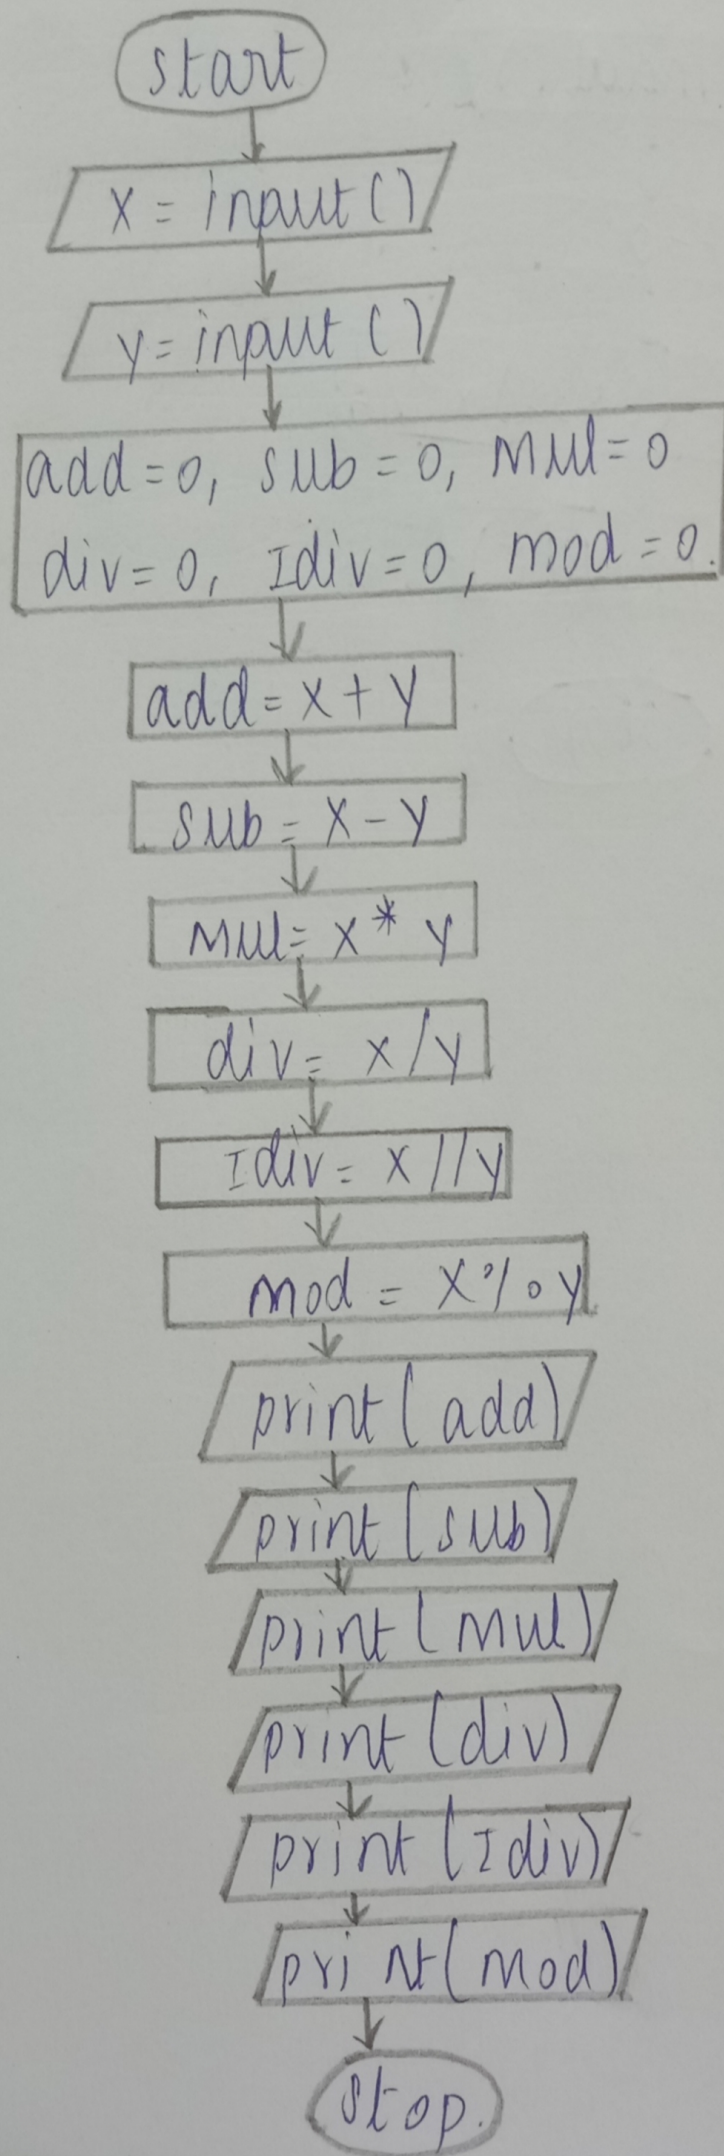 start
x = input()
y = input()
add = 0, sub = 0, mul = 0
div = 0, Idiv = 0, mod = 0.
add = x + y
sub = x - y
mul = x * y
div = x / y
Idiv = x // y
mod = x % y
print(add)
print(sub)
print(mul)
print(div)
print(Idiv)
print(mod)
stop.